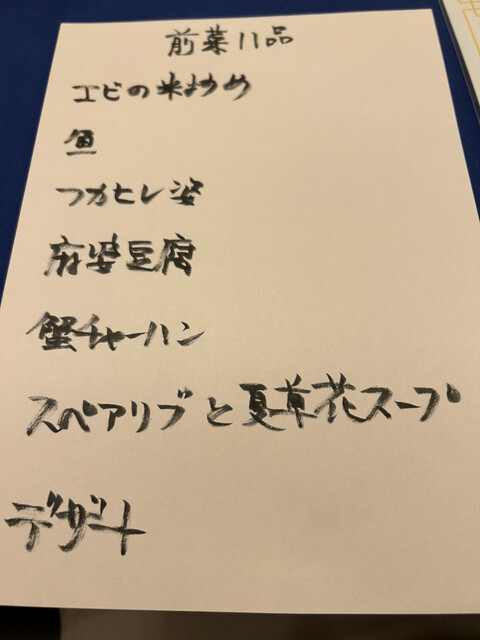 前菜11品
エビの米炒め
魚
フカヒレ姿
麻婆豆腐
蟹チャーハン
スペアリブと夏草花スープ
デザート